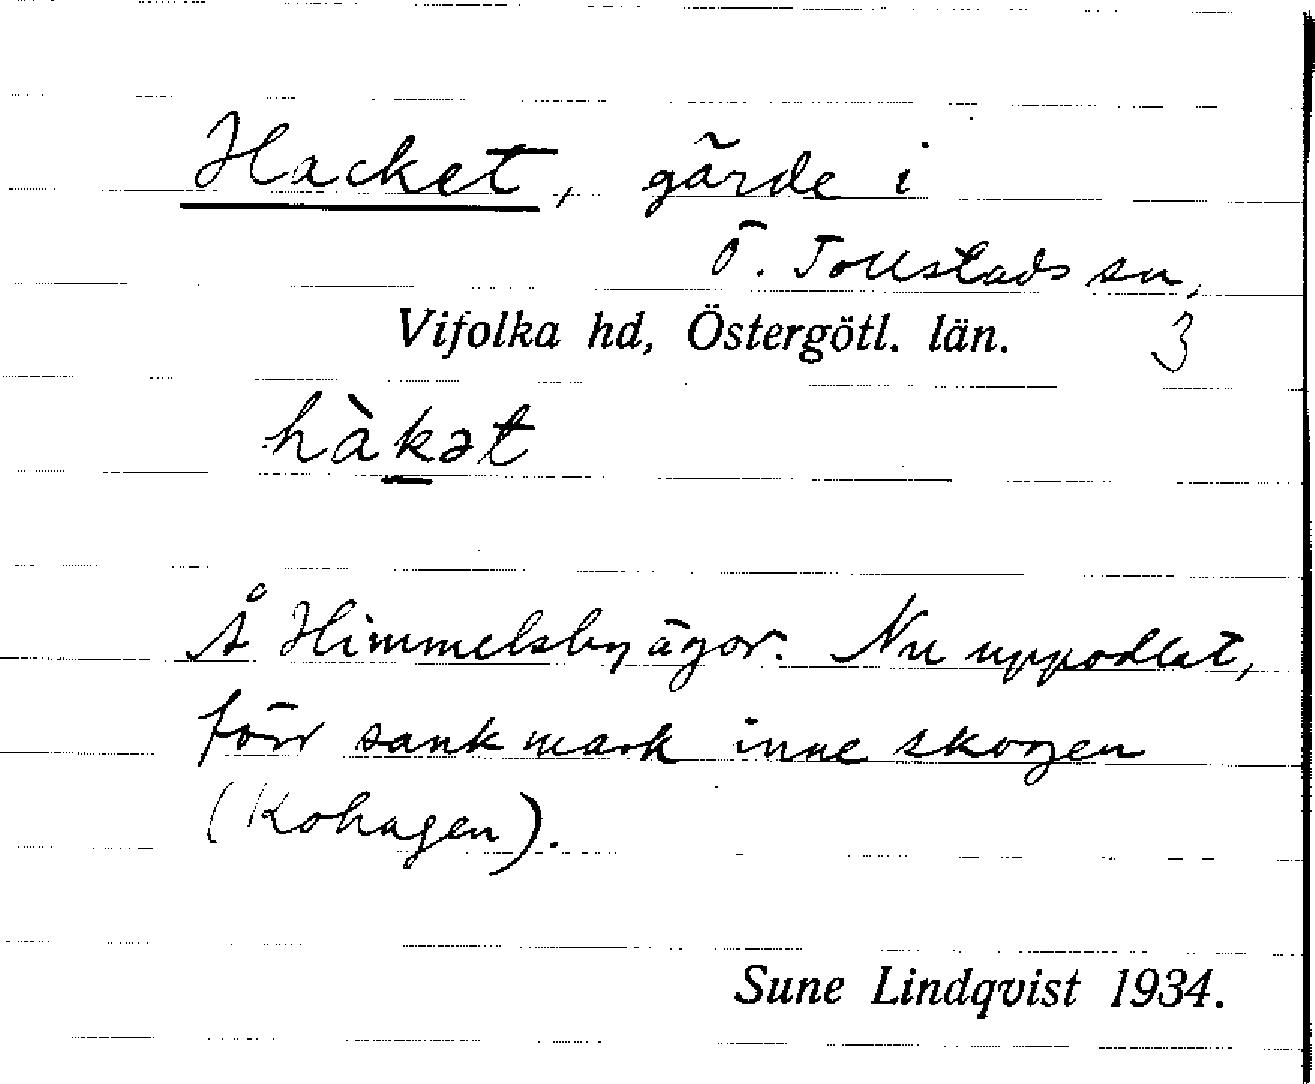 Hacket, gärde i
Ö. Tollstads sn,
Vifolka hd, Östergötl. län. 3
hàkət
Å Himmelsby ägor. Nu uppodlat,
förr sank mark inne skogen
(Kohagen).
Sune Lindqvist 1934.